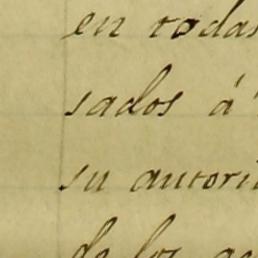 en todas
sados á
su autori
de los